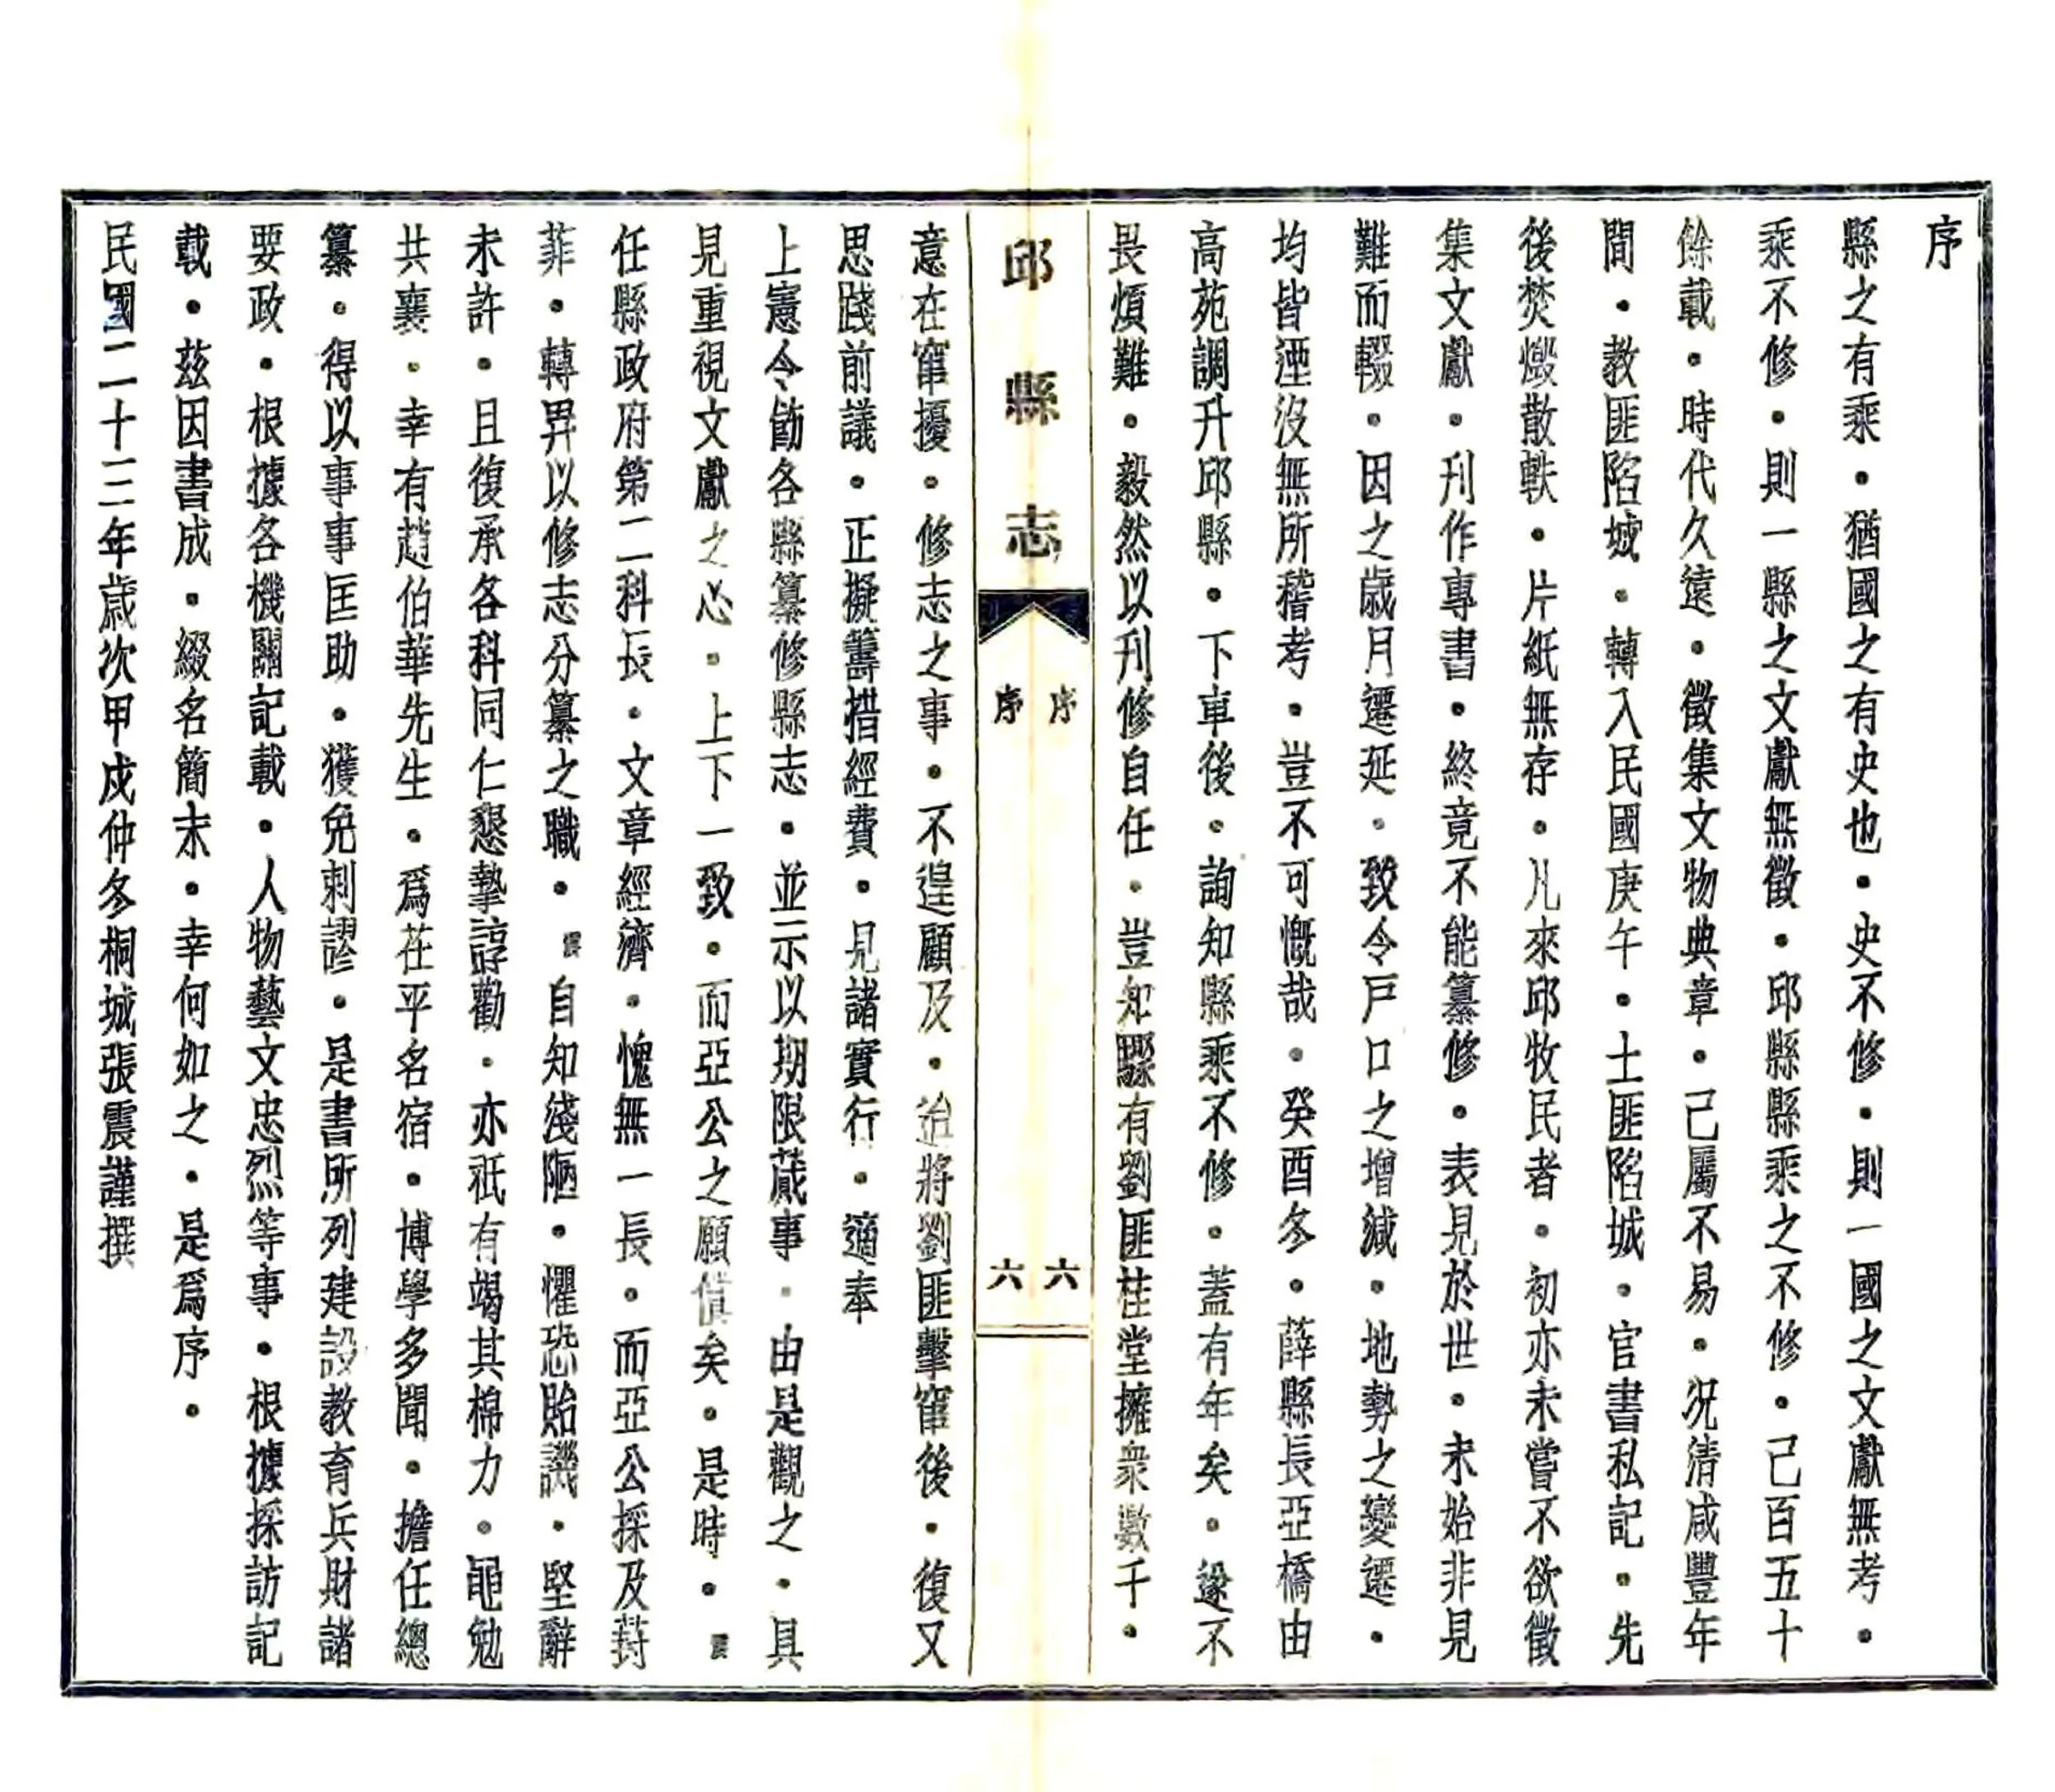 序
縣之有乘．猶國之有史也．史不修．則一國之文獻無考．
乘不修．則一縣之文獻無徵．邱縣縣乘之不修．己百五十
餘載．時代久遠．徵集文物典章．己屬不易．况清咸豐年
間．教匪陷城．轉入民國庚午．土匪陷城．官書私記．先
後焚燬散軼．片紙無存．凡來邱牧民者．初亦未嘗不欲徵
集文獻．刊作專書．終竟不能纂修．表見於世．未始非見
難而輟．因之歲月遷延．致令戸口之增減．地勢之變遷．
均皆湮沒無所稽考．豈不可慨哉．癸酉冬．薛縣長亞橋由
高苑調升邱縣．下車後．詢知縣乘不修．蓋有年矣．遂不
畏煩難．毅然以刋修自任．豈知驟有劉匪桂堂擁衆數千．
邱縣志
序
序
六
六
意在竄擾．修志之事．不遑顧及．迨將劉匪擊竄後．復又
思踐前議．正擬籌措經費．見諸實行．適奉
上憲令飭各縣纂修縣志．並示以期限蕆事．由是觀之．具
見重視文獻之心．上下一致．而亞公之願償矣．是時．震
任縣政府第二科長．文章經濟．愧無一長．而亞公採及葑
菲．轉畀以修志分纂之職．震自知淺陋．懼恐貽譏．堅辭
未許．且復承各科同仁懇摯諄勸．亦祇有竭其棉力．黽勉
共襄．幸有趙伯華先生．爲茌平名宿．博學多聞．擔任總
纂．得以事事匡助．獲免刺謬．是書所列建設教育兵財諸
要政．根據各機關記載．人物藝文忠烈等事．根據採訪記
載．茲因書成．綴名簡末．幸何如之．是爲序．
民國二十三年歲次甲戍仲冬桐城張震謹撰